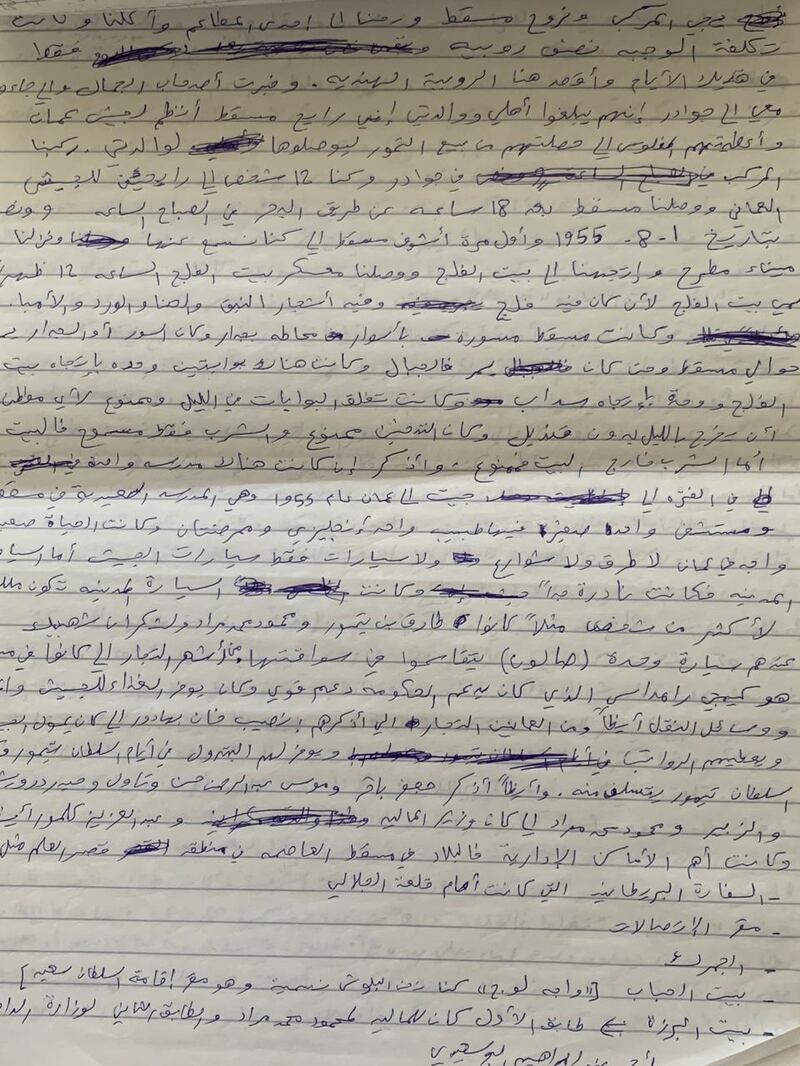 يجي المركب ونروح مسقط ورحنا الى احدى المطاعم وأكلنا وكانت
تكلفة الوجبه نصف روبيه فقط
في هذيك الأيام وأقصد هنا الروبية الهنديه. وخبرت أصحاب الجمال والي جاءو
معي الى جوادر إنهم يبلغوا أهلي ووالدتي إني رايح مسقط أنظم لجيش عمان
وأعطيتهم الفلوس الي حصلتهم من بيع التمور ليوصلوها لوالدتي. ركبنا
المركب في جوادر وكنا 12 شخص الي رايحين للجيش
العماني ووصلنا مسقط بعد 18 ساعه عن طريق البحر في الصباح الساعه
بتاريخ 1-8-1955 وأول مرة أشوف مسقط الي كنا نسمع عنها ونزلنا
ميناء مطرح وإتجهنا الى بيت الفلج ووصلنا معسكر بيت الفلج الساعه 12 ظهرا
سمي بيت الفلج لأن كان فيه فلج وفيه أشجار النبق والحنا والورد والأمبا.
وكانت مسقط مسورة بأسوار محاطه بجدار وكان السور أو الجدار
حوالي مسقط وحتى كان يمر فالجبال وكانت هناك بوابتين وحده بإتجاه بيت
الفلج ووحدة بإتجاه سداب وكانت تغلق البوابات في الليل وممنوع لأي مواطن
أن يخرج بالليل بدون قنديل وكان التدخين ممنوع والشرب فقط مسموح فالبيت
أما الشرب خارج البيت فممنوع. وأذكر إن كانت هناك مدرسه واحدة
في الفتره الي جيت الى عمان عام 1955 وهي المدرسه السعيدية في مسقط
ومستشفى واحد صغير فيها طبيب واحد إنجليزي وممرضتان وكانت الحياة صعبة
واجد في عمان لا طرق ولا شوارع ولا سيارات فقط سيارات الجيش أما السيارات
المدنيه فكانت نادرة جداً وكانت السيارة المدنيه تكون ملك
لأكثر من شخص مثلاً كانوا طارق بن تيمور ومحمود محمد مراد
عندهم سيارة وحدة (صالون) يتقاسموا في سواقتها. من أشهر التجار الي كانوا في
هو كيمجي رامداس الذي كان يدعم الحكومه دعم قوي وكان يوفر الغذاء للجيش
ووسائل النقل أيضاً ومن العمانين التجار الي أذكرهم نصيب خان بهادور الي كان يمول
ويعطيهم الرواتب ويوفر لهم البترول في أيام السلطان تيمور
السلطان تيمور يتسلف منه. وأيضاً أذكر جعفر باقر وموسى عبد الرحمن حسن
والزبير ومحمود محمد مراد الي كان وزير الماليه وعبد العزيز
وكانت أهم الأماكن الإدارية فالبلاد في مسقط العاصمه في منطقه قصر العلم مثل
- السفارة البريطانيه التي كانت أمام قلعة الجلالي
- مقر الإتصالات
- الجمرك
- بيت الحباب كنا نحن البلوش نسميه وهو مقر إقامة السلطان سعيد]
- بيت البرزة طابق الأول كان للماليه لمحمود محمد مراد والطابق الثاني لوزارة